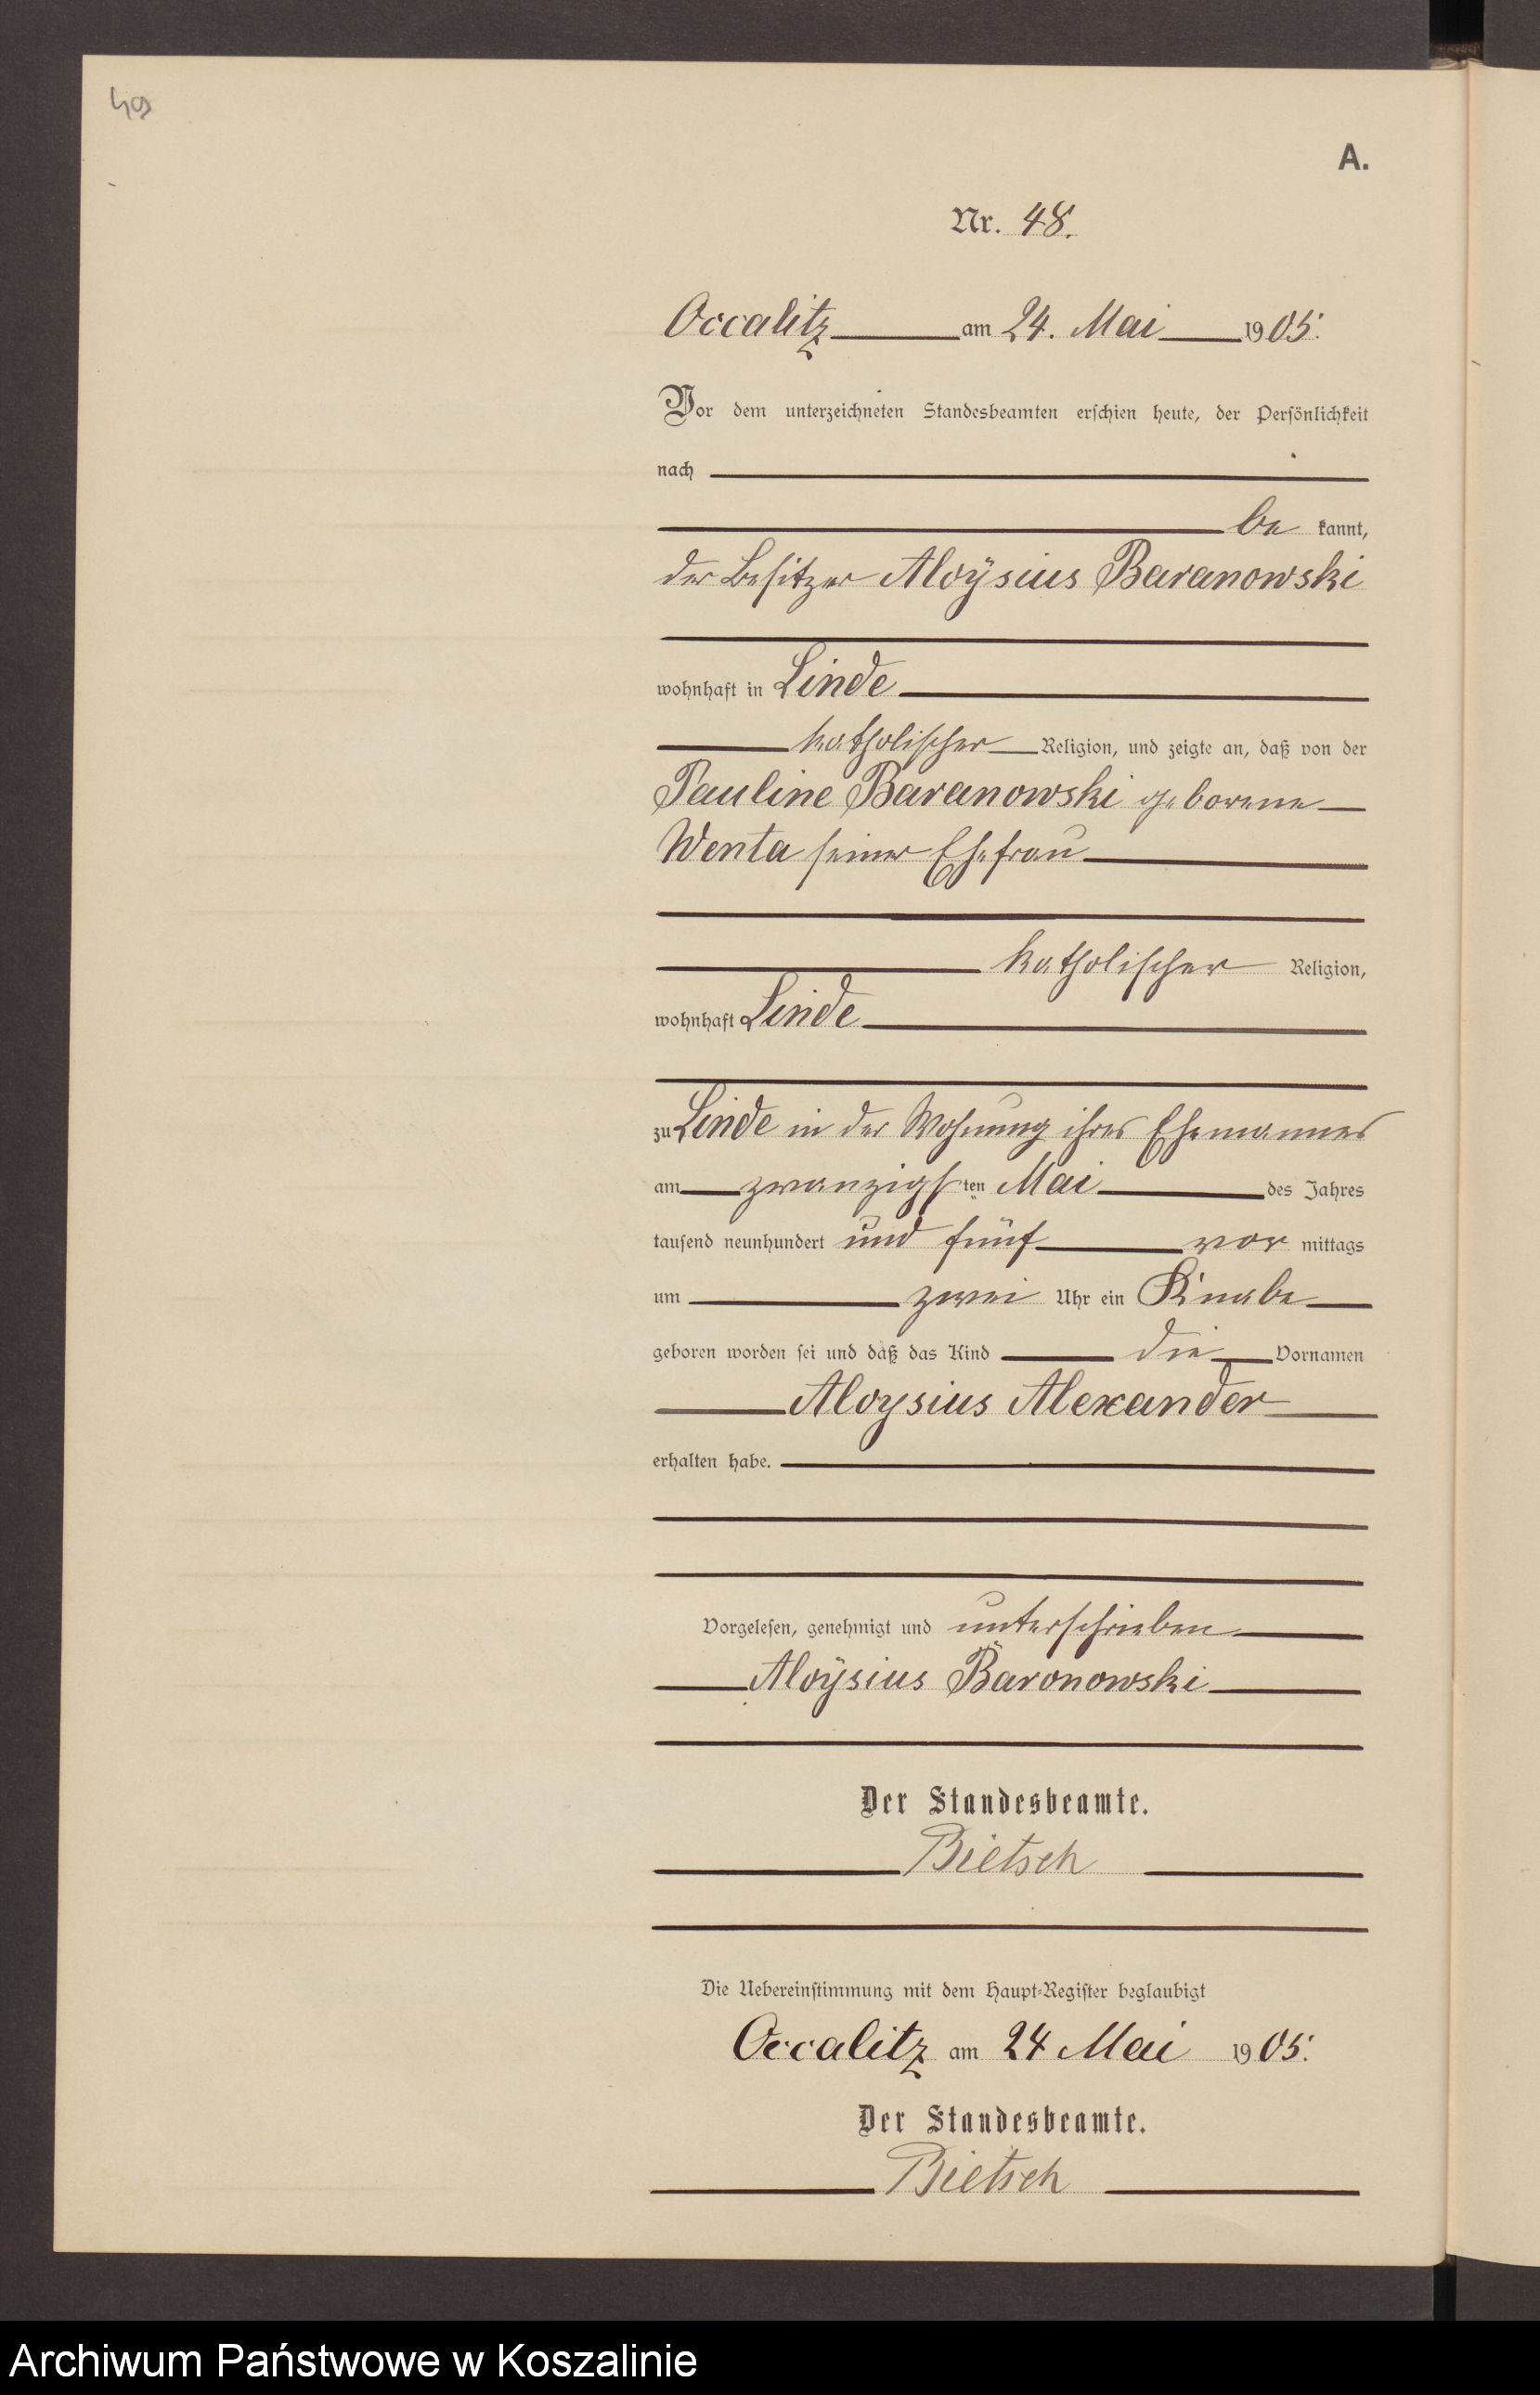 49
A.
Nr. 48.
Occalitz am 24. Mai 1905.
Vor dem unterzeichneten Standesbeamten erschien heute, der Persönlichkeit
nach
be kannt,
der Besitzer Aloÿsius Baranowski
wohnhaft in Linde
katholischer Religion, und zeigte an, daß von der
Pauline Baranowski geborene
Wenta seiner Ehefrau
katholischer Religion,
wohnhaft Linde
zu Linde in der Wohnung ihres Ehemannes
am zwanzigsten Mai des Jahres
tausend neunhundert und fünf vor mittags
um zwei Uhr ein Knabe
geboren worden sei und daß das Kind die Vornamen
Aloysius Alexander
erhalten habe.
Vorgelesen, genehmigt und unterschrieben
Aloÿsius Baronowski
Der Standesbeamte.
Bietsch
Die Uebereinstimmung mit dem Haupt-Register beglaubigt
Occalitz am 24 Mai 1905.
Der Standesbeamte.
Bietsch
Archiwum Państwowe w Koszalinie